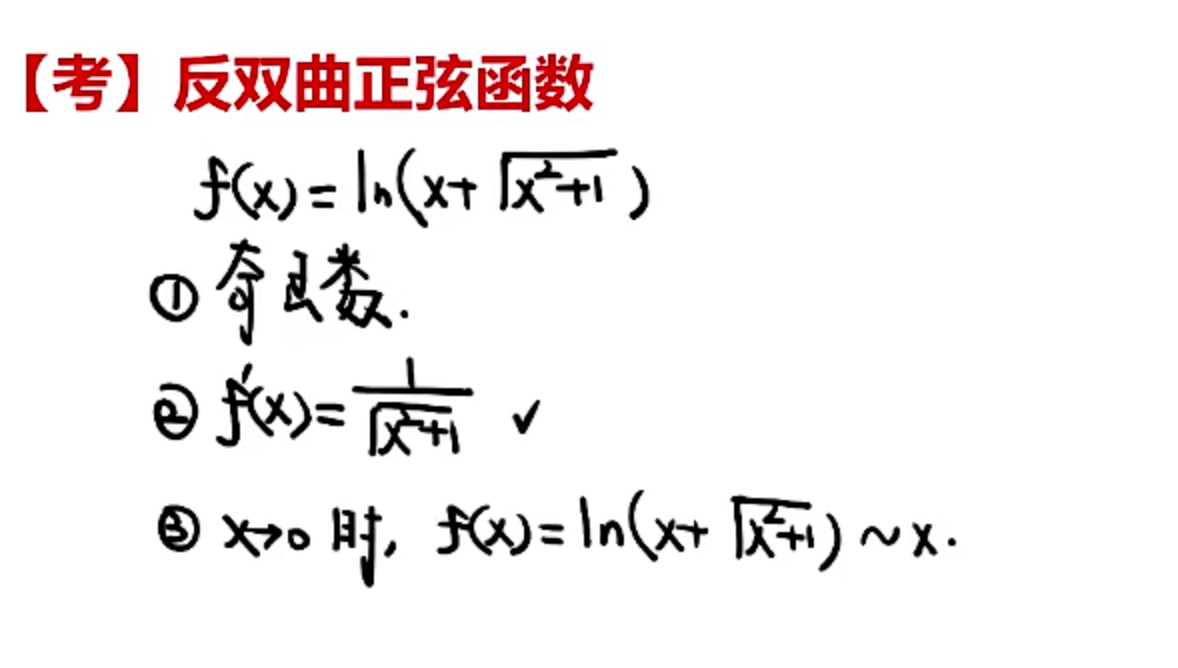 【考】反双曲正弦函数
f(x)=ln(x+√(x²+1))
① 奇函数.
② f'(x)=1/√(x²+1) ✓
③ x→0时, f(x)=ln(x+√(x²+1))~x.